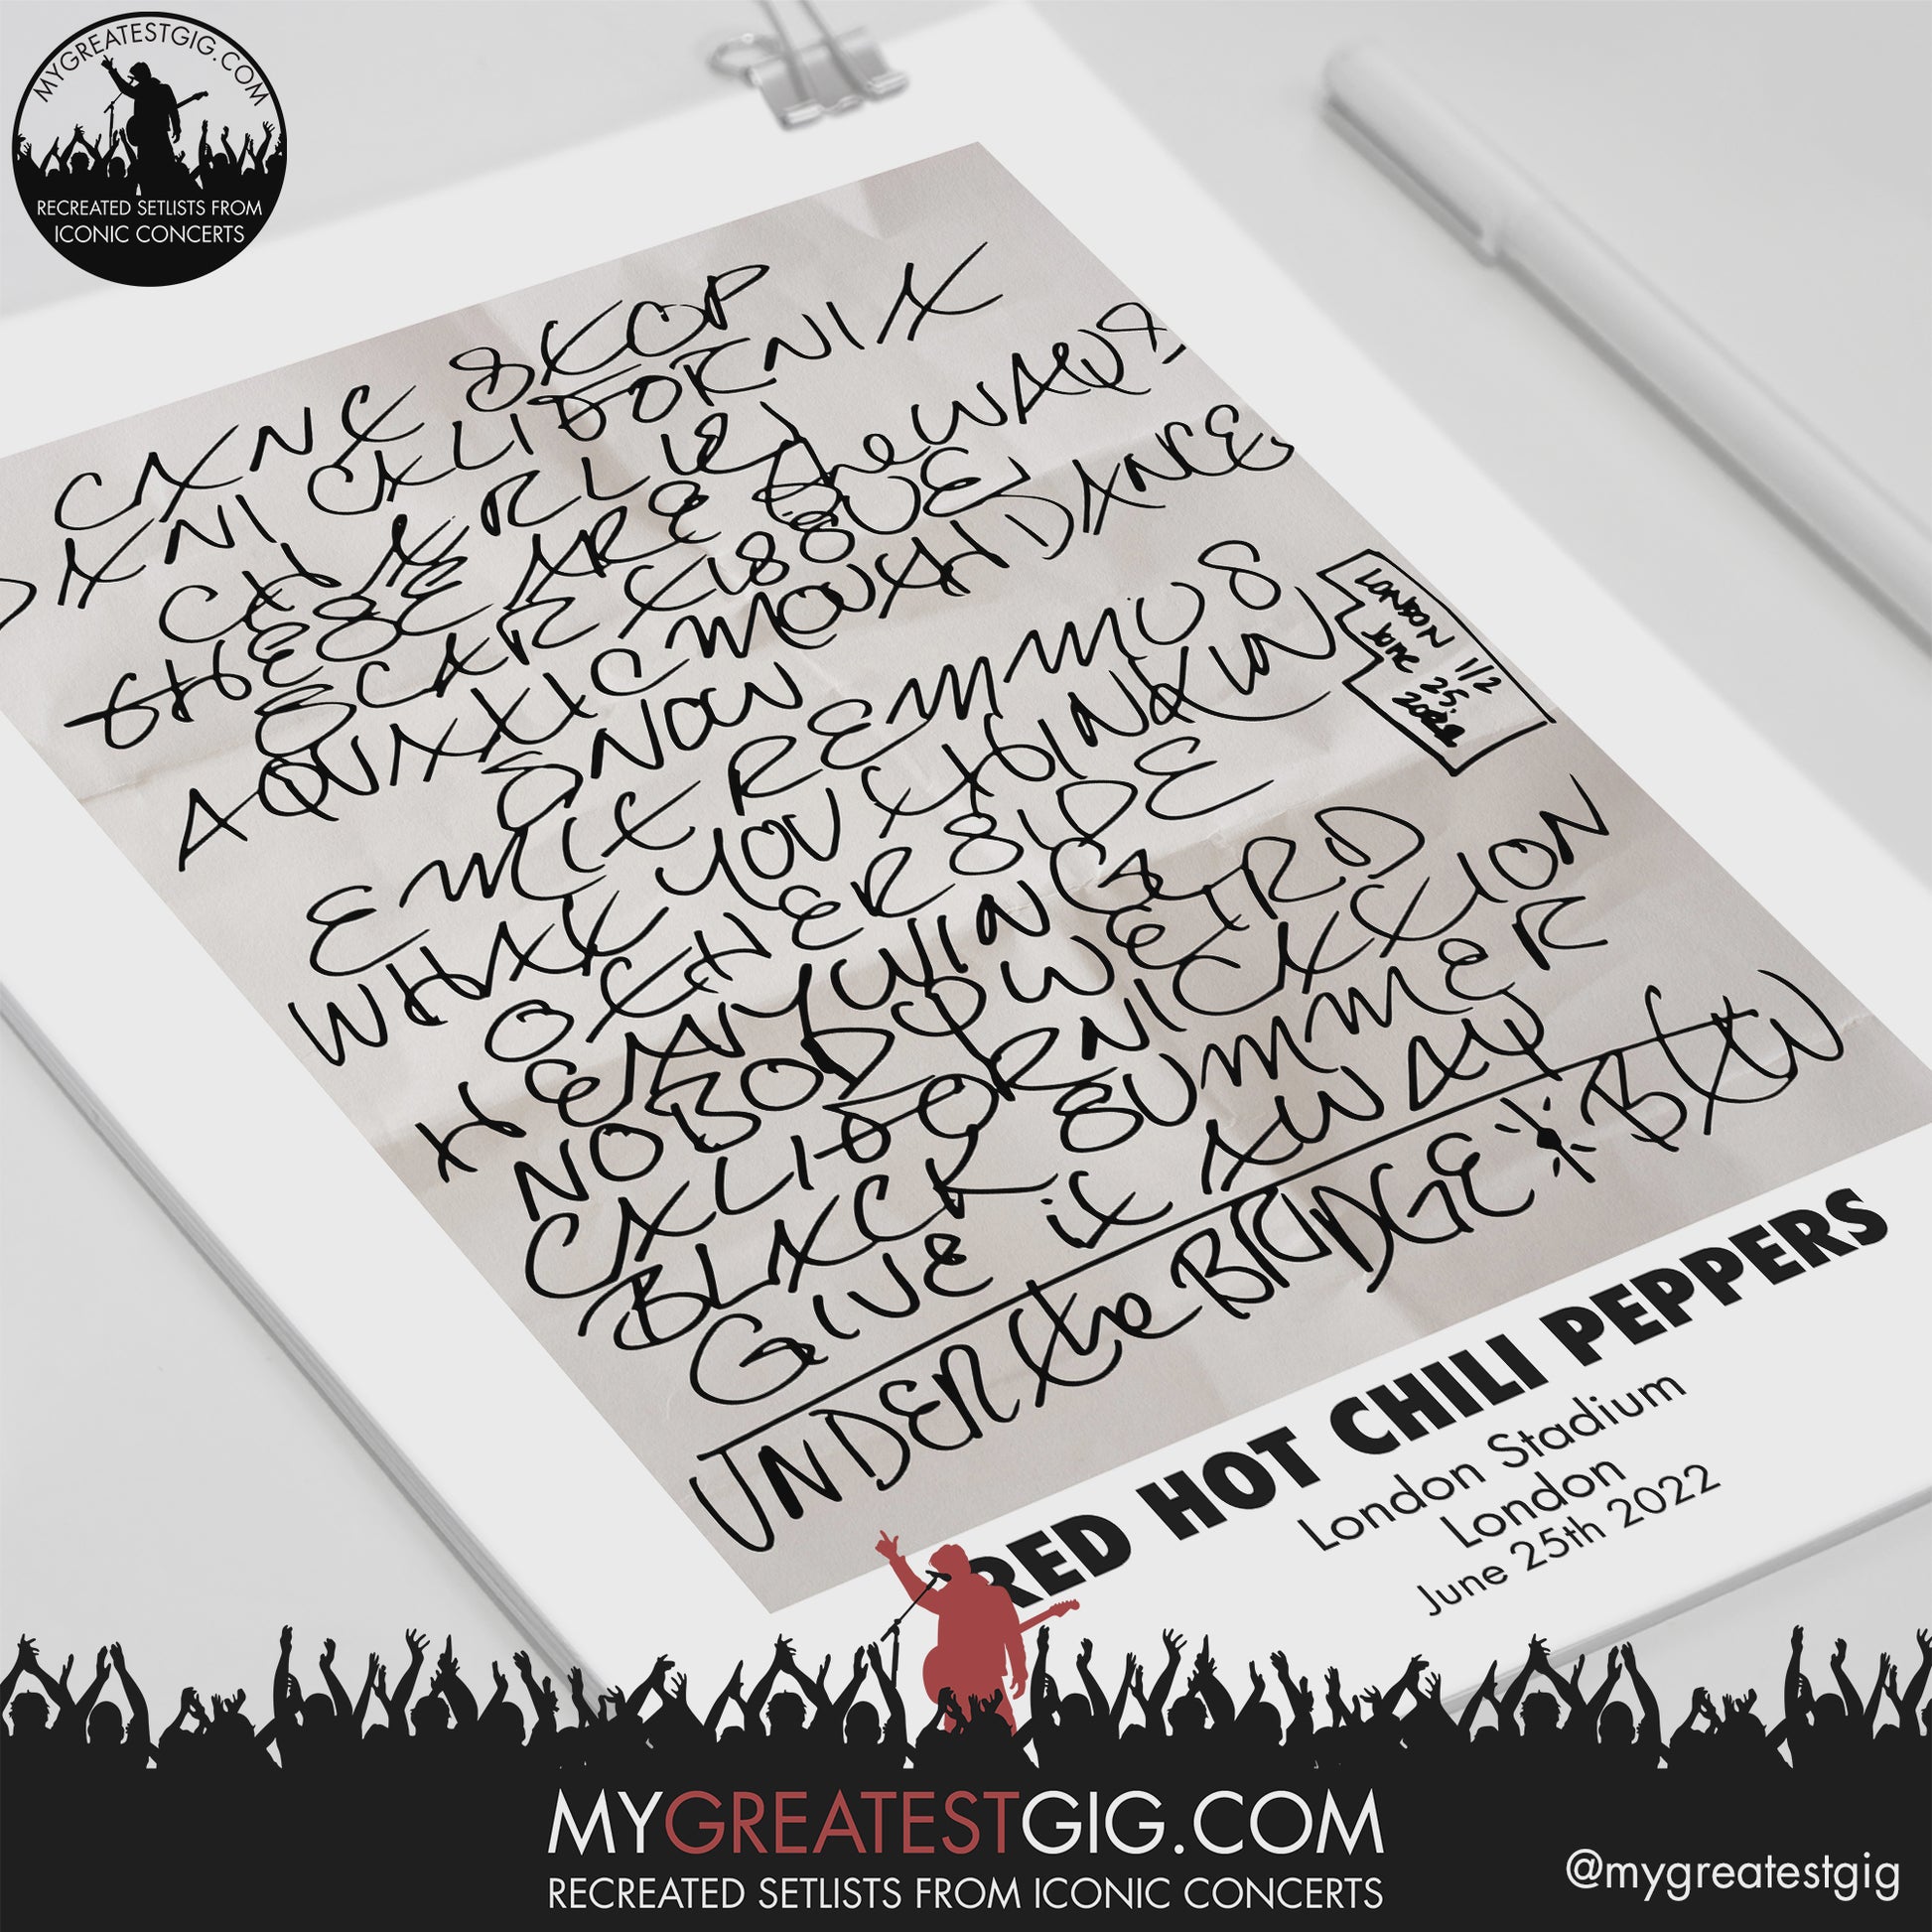 MYGREATESTGIG.COM
RECREATED SETLISTS FROM
ICONIC CONCERTS
CAN'T STOP
DANI CALIFORNIA
CHARLIE
THESE ARE the WAYS
SCAR TISSUE
AQUATIC MOUTH DANCE
SNOW
EMIT REMMUS
WHAT YOU THINKIN
OTHERSIDE
HEAVY WING
NOBODY WEIRD
CALIFORNICATION
BLACK SUMMER
GIVE it AWAY
UNDER the BRIDGE * BTW
LONDON 1/2
JUNE 25.
2022
RED HOT CHILI PEPPERS
London Stadium
London
June 25th 2022
MYGREATESTGIG.COM
RECREATED SETLISTS FROM ICONIC CONCERTS
@mygreatestgig